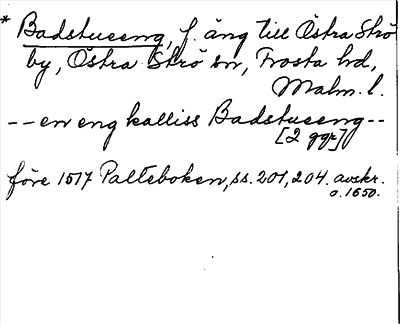 * Badstueeng, f. äng till Östra Strö
by, Östra Strö sn, Frosta hd,
Malm. l.
-- en eng kalliss Badstueng --
[2 ggr]
före 1517 Palteboken, ss. 201, 204. avskr.
o. 1650.